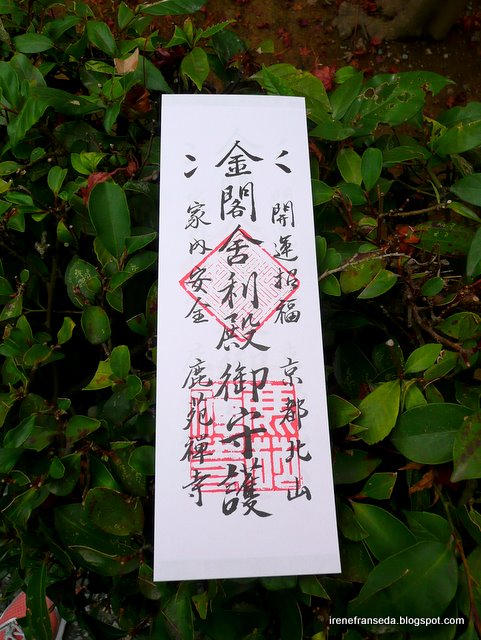 開運招福 京都北山
金閣舎利殿御守護
家内安全 鹿苑禅寺
irenefranseda.blogspot.com